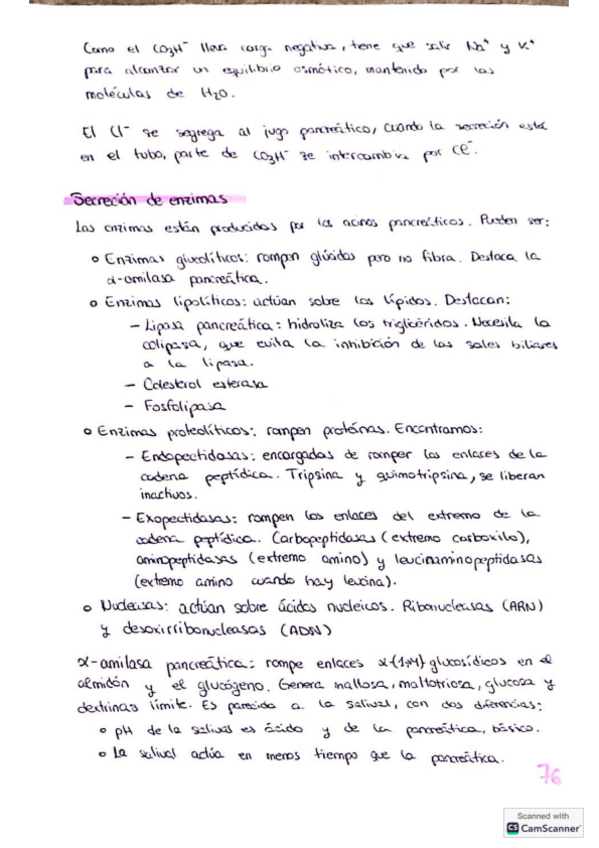 Como el CO3H⁻ lleva carga negativa, tiene que salir Na⁺ y K⁺
para alcanzar un equilibrio osmótico, mantenido por las
moléculas de H2O.
El Cl⁻ se segrega al jugo pancreático, cuando la secreción está
en el tubo, parte de CO3H⁻ se intercambia por Cl⁻.
Secreción de enzimas
Las enzimas están producidas por los acinos pancreáticos. Pueden ser:
o Enzimas glucolíticos: rompen glúcidos pero no fibra. Destaca la
α-amilasa pancreática.
o Enzimas lipolíticos: actúan sobre los lípidos. Destacan:
- Lipasa pancreática: hidroliza los triglicéridos. Necesita la
colipasa, que evita la inhibición de las sales biliares
a la lipasa.
- Colesterol esterasa
- Fosfolipasa
o Enzimas proteolíticos: rompen proteínas. Encontramos:
- Endopectidasas: encargadas de romper los enlaces de la
cadena peptídica. Tripsina y quimotripsina, se liberan
inactivos.
- Exopectidasas: rompen los enlaces del extremo de la
cadena peptídica. Carbopeptidasas (extremo carboxilo),
aminopeptidasas (extremo amino) y leucinaminopeptidasas
(extremo amino cuando hay leucina).
o Nucleasas: actúan sobre ácidos nucleicos. Ribonucleasas (ARN)
y desoxirribonucleasas (ADN)
α-amilasa pancreática: rompe enlaces α-(1,4) glucosídicos en el
almidón y el glucógeno. Genera maltosa, maltotriosa, glucosa y
dextrinas límite. Es parecida a la salival, con dos diferencias:
o pH de la salival es ácido y de la pancreática, básico.
o La salival actúa en menos tiempo que la pancreática.
76
Scanned with
CS CamScanner